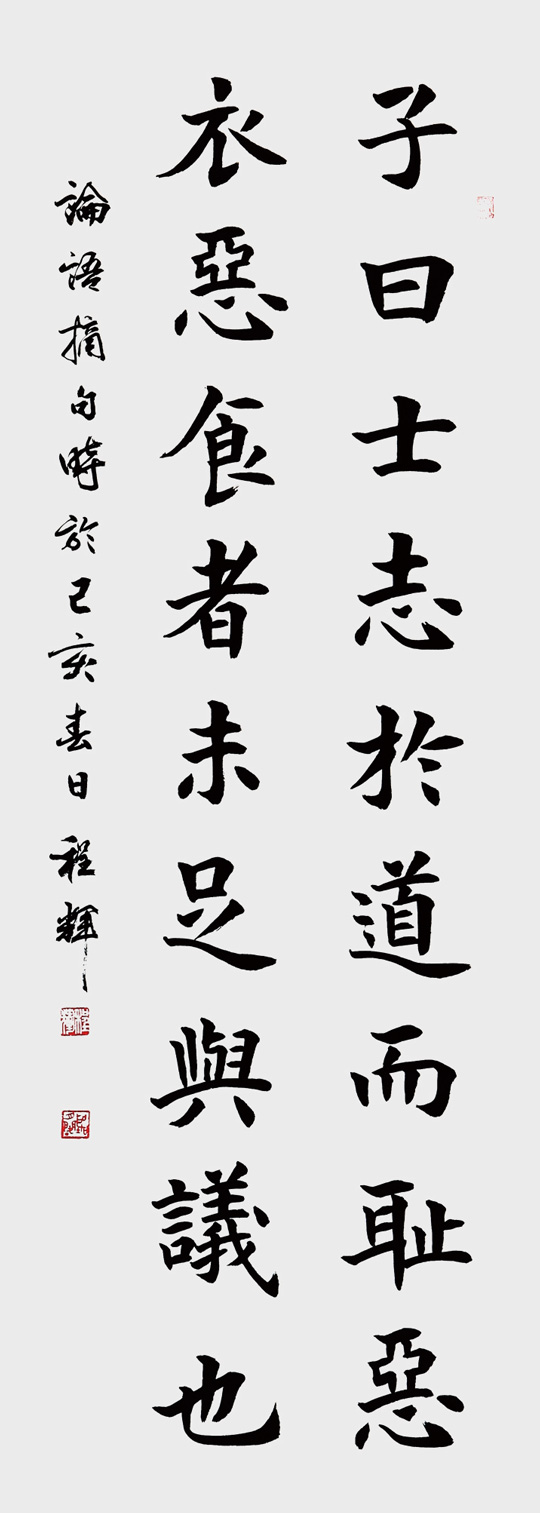 子曰士志於道而耻惡
衣惡食者未足與議也
論語摘句時於己亥春日程輝